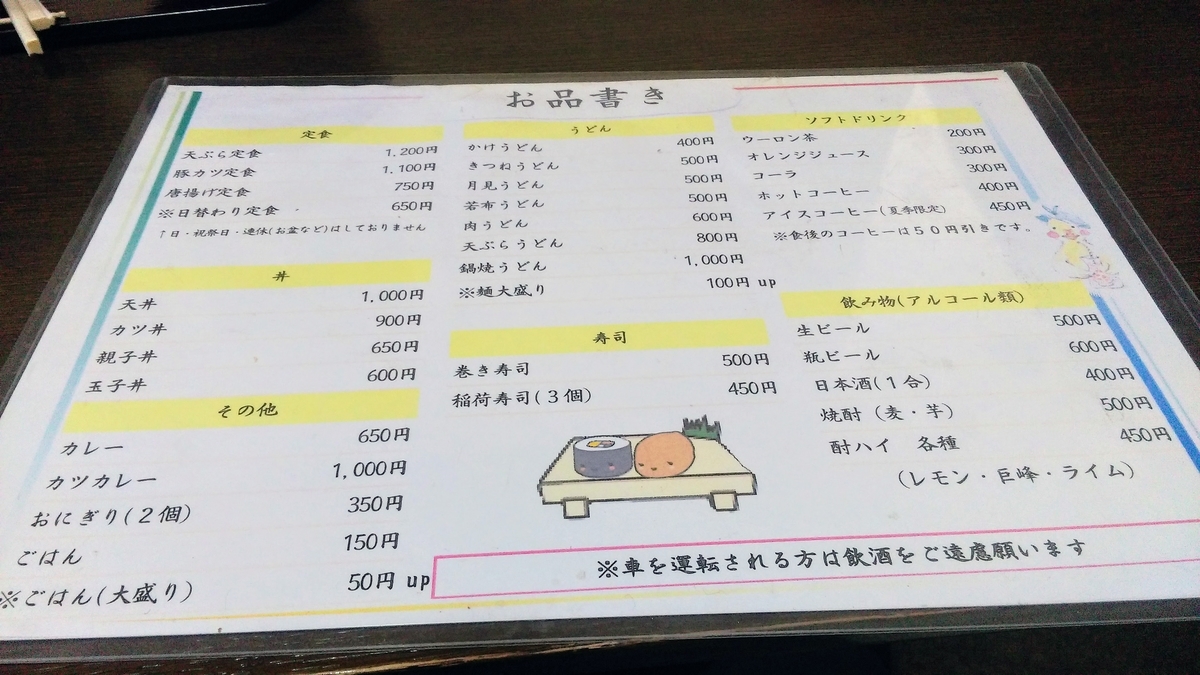 お品書き
定食
天ぷら定食 1,200円
豚カツ定食 1,100円
唐揚げ定食 750円
※日替わり定食 650円
↑日・祝祭日・連休(お盆など)はしておりません
丼
天丼 1,000円
カツ丼 900円
親子丼 650円
玉子丼 600円
その他
カレー 650円
カツカレー 1,000円
おにぎり(2個) 350円
ごはん 150円
※ごはん(大盛り) 50円 up
うどん
かけうどん 400円
きつねうどん 500円
月見うどん 500円
若布うどん 500円
肉うどん 600円
天ぷらうどん 800円
鍋焼うどん 1,000円
※麺大盛り 100円 up
寿司
巻き寿司 500円
稲荷寿司(3個) 450円
ソフトドリンク
ウーロン茶 200円
オレンジジュース 300円
コーラ 300円
ホットコーヒー 400円
アイスコーヒー(夏季限定) 450円
※食後のコーヒーは50円引きです。
飲み物(アルコール類)
生ビール 500円
瓶ビール 600円
日本酒(1合) 400円
焼酎(麦・芋) 500円
酎ハイ 各種 450円
(レモン・巨峰・ライム)
※車を運転される方は飲酒をご遠慮願います